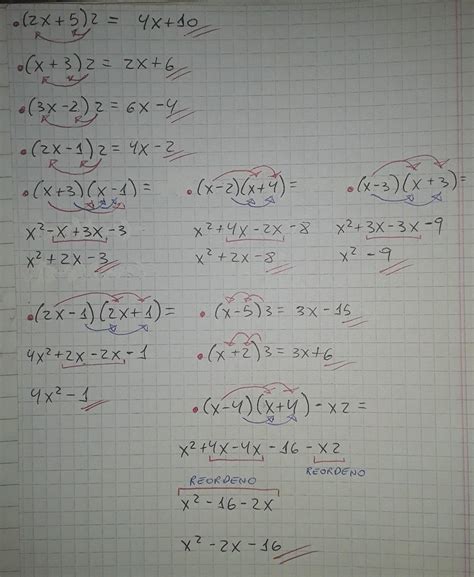 (2x+5)2 = 4x+10
(x+3)2 = 2x+6
(3x-2)2 = 6x-4
(2x-1)2 = 4x-2
(x+3)(x-1)=
x²-x+3x-3
x²+2x-3
(x-2)(x+4)=
x²+4x-2x-8
x²+2x-8
(x-3)(x+3)=
x²+3x-3x-9
x²-9
(2x-1)(2x+1)=
4x²+2x-2x-1
4x²-1
(x-5)3 = 3x-15
(x+2)3 = 3x+6
(x-4)(x+4)-x2=
x²+4x-4x-16-x2
REORDENO
REORDENO
x²-16-2x
x²-2x-16